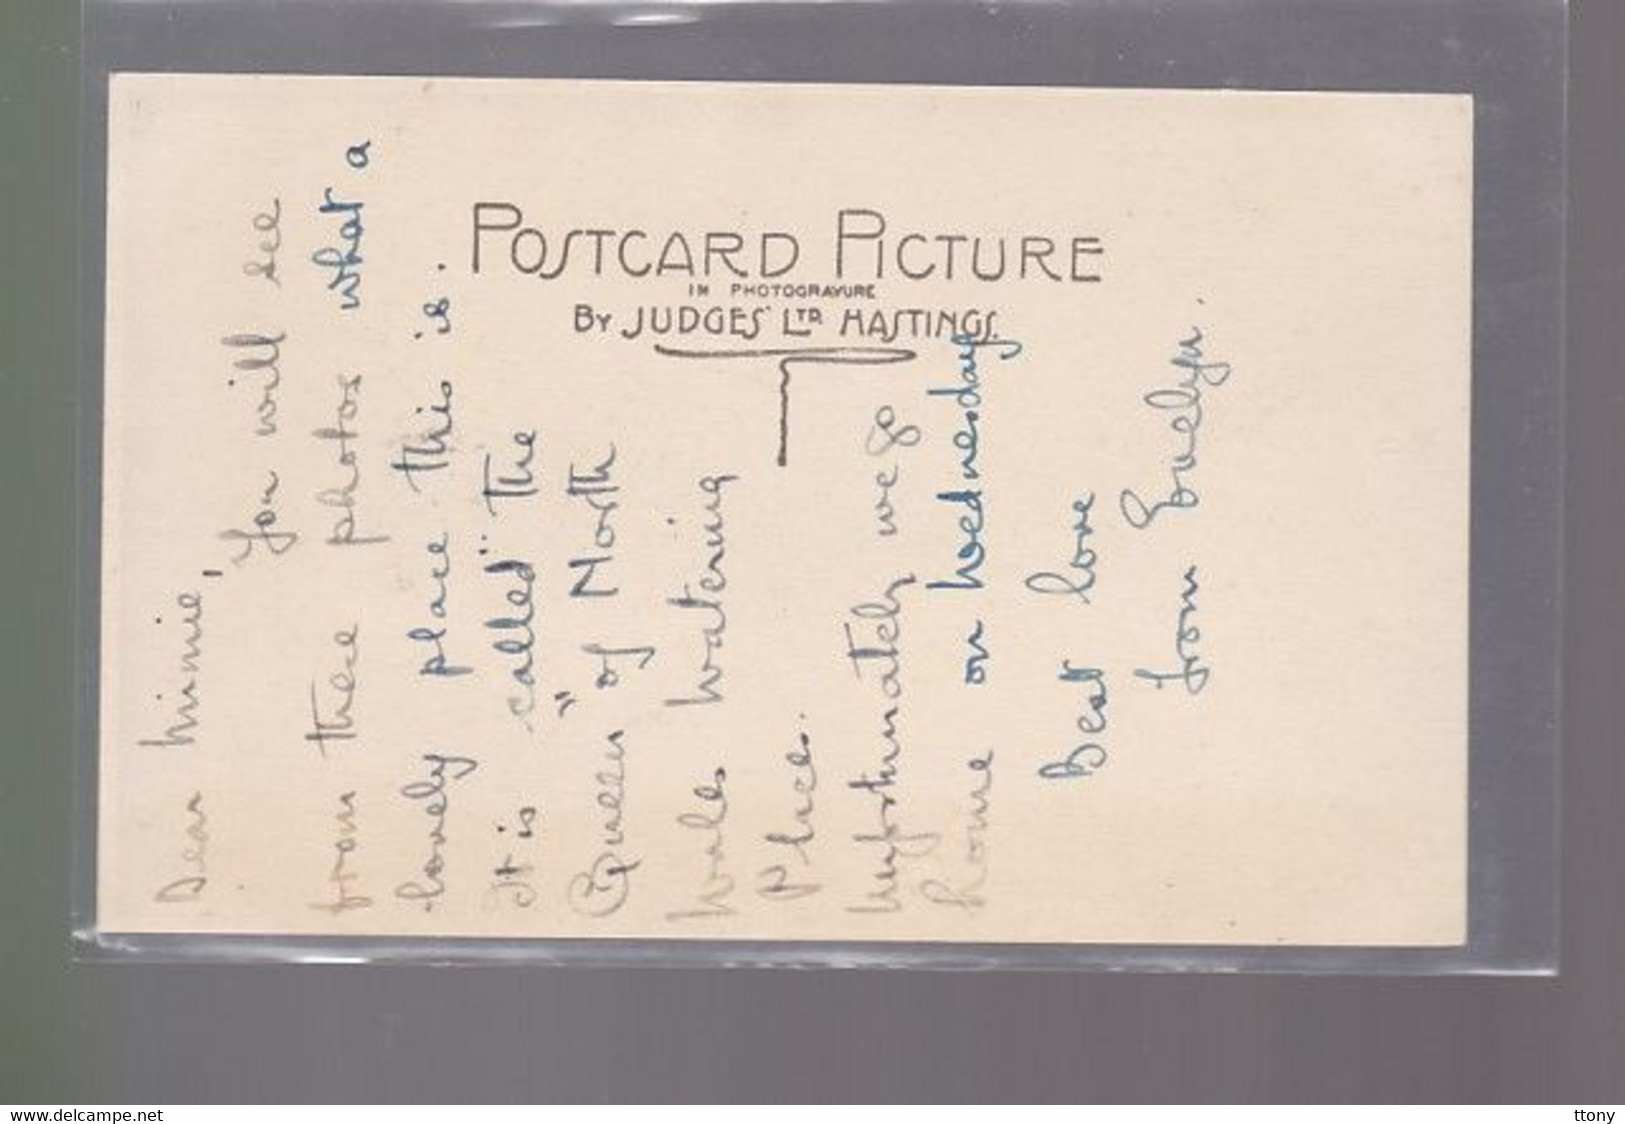 POSTCARD PICTURE
IN PHOTOGRAVURE
BY JUDGES' LTD HASTINGS.
Dear Minnie,
You will see
from these photos what a
lovely place this is.
It is called "The
Queen" of North
Wales Watering
Places.
Unfortunately we go
home on Wednesday
Best love
from Evelyn.
www.delcampe.net
ttony